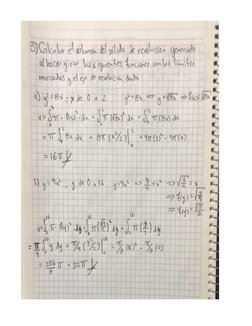 3) Calcular el volumen del sólido de revolución generado
al hacer girar las siguientes funciones con los límites
marcados y el eje de revolución dado
a) y² = 8x ; x de 0 a 2   y² = 8x ⇔ y = √8x ⇒ f(x) = √8x
v = ∫₀² π · f(x)² dx = ∫₀² π (√8x)² dx = ∫₀² π (8x) dx
= π ∫₀² 8x dx = 8π (x²/2)|₀² = 4π(2)² - 4π(0)
= 16π
b) y = 4x² ; y de 0 a 16   y = 4x² ⇔ y/4 = x² ⇒ √(y/4) = x
⇒ f(y) = √(y/4)
⇒ f(y) = √y/2
v = ∫₀¹⁶ π · f(y)² dy = ∫₀¹⁶ π (√y/2)² dy = ∫₀¹⁶ π (y/4) dy
= π/4 ∫₀¹⁶ y dy = π/4 (y²/2)|₀¹⁶ = π/8 (16)² - π/8 (0)
= 256/8 π = 32π